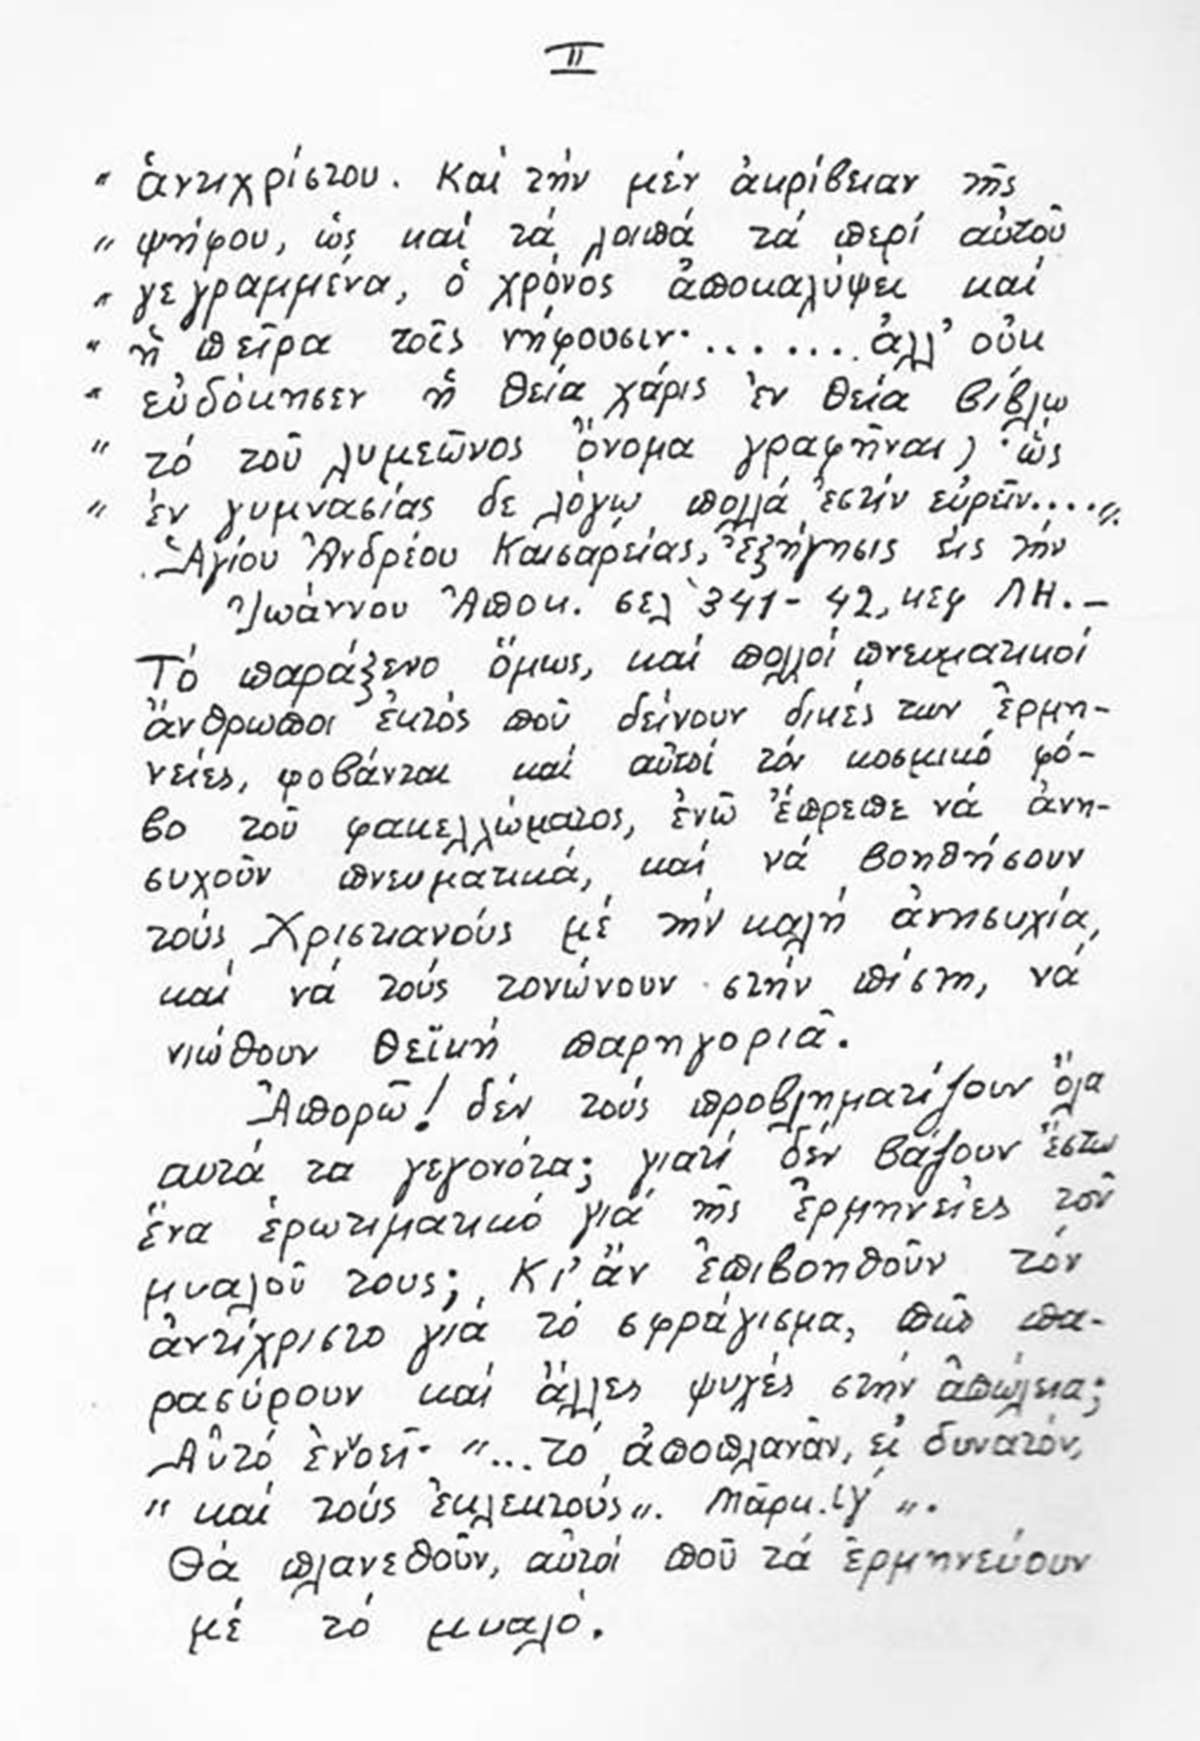 II
" ἀντιχρίστου. Καί τήν μέν ἀκρίβειαν τῆς
" ψήφου, ὡς καί τά λοιπά τά περί αὐτοῦ
" γεγραμμένα, ὁ χρόνος ἀποκαλύψει καί
" ἡ πεῖρα τοῖς νήφουσιν· ....... ἀλλ' οὐκ
" εὐδόκησεν ἡ θεία χάρις ἐν θεία βίβλω
" τό τοῦ λυμεῶνος ὄνομα γραφῆναι, ὡς
" ἐν γυμνασίας δε λόγω πολλά ἐστίν εὑρεῖν...."
Ἁγίου Ἀνδρέου Καισαρείας, ἐξήγησις εἰς τήν
Ἰωάννου Ἀποκ. σελ 341-42, κεφ ΛΗ. –
Τό παράξενο ὅμως, καί πολλοί πνευματικοί
ἄνθρωποι ἐκτός ποῦ δείνουν δικές των ἑρμη-
νείες, φοβάνται καί αὐτοί τόν κοσμικό φό-
βο τοῦ φακελλώματος, ἐνῶ ἔπρεπε νά ἀνη-
συχοῦν πνευματικά, καί νά βοηθήσουν
τούς Χριστιανούς μέ τήν καλή ἀνησυχία,
καί νά τούς τονώνουν στήν πίστη, νά
νιώθουν θεϊκή παρηγοριά.
Ἀπορῶ! δέν τούς προβληματίζουν ὅλα
αυτά τα γεγονότα; γιατί δέν βάζουν ἔστω
ἕνα ἐρωτιματικό γιά τῆς ἑρμηνείες τοῦ
μυαλοῦ τους; Κι' ἄν ἐπιβοηθοῦν τόν
ἀντίχριστο γιά τό σφράγισμα, πῶς πα-
ρασύρουν καί ἄλλες ψυχές στήν ἀπώλεια;
Αὐτό ἐνοεῖ· "...τό ἀποπλανᾶν, εἰ δυνατόν,
" καί τούς ἐκλεκτούς". Μᾶρκ. ιγ' ".
Θά πλανεθοῦν, αὐτοί ποῦ τά ἑρμηνεύουν
μέ τό μυαλό.